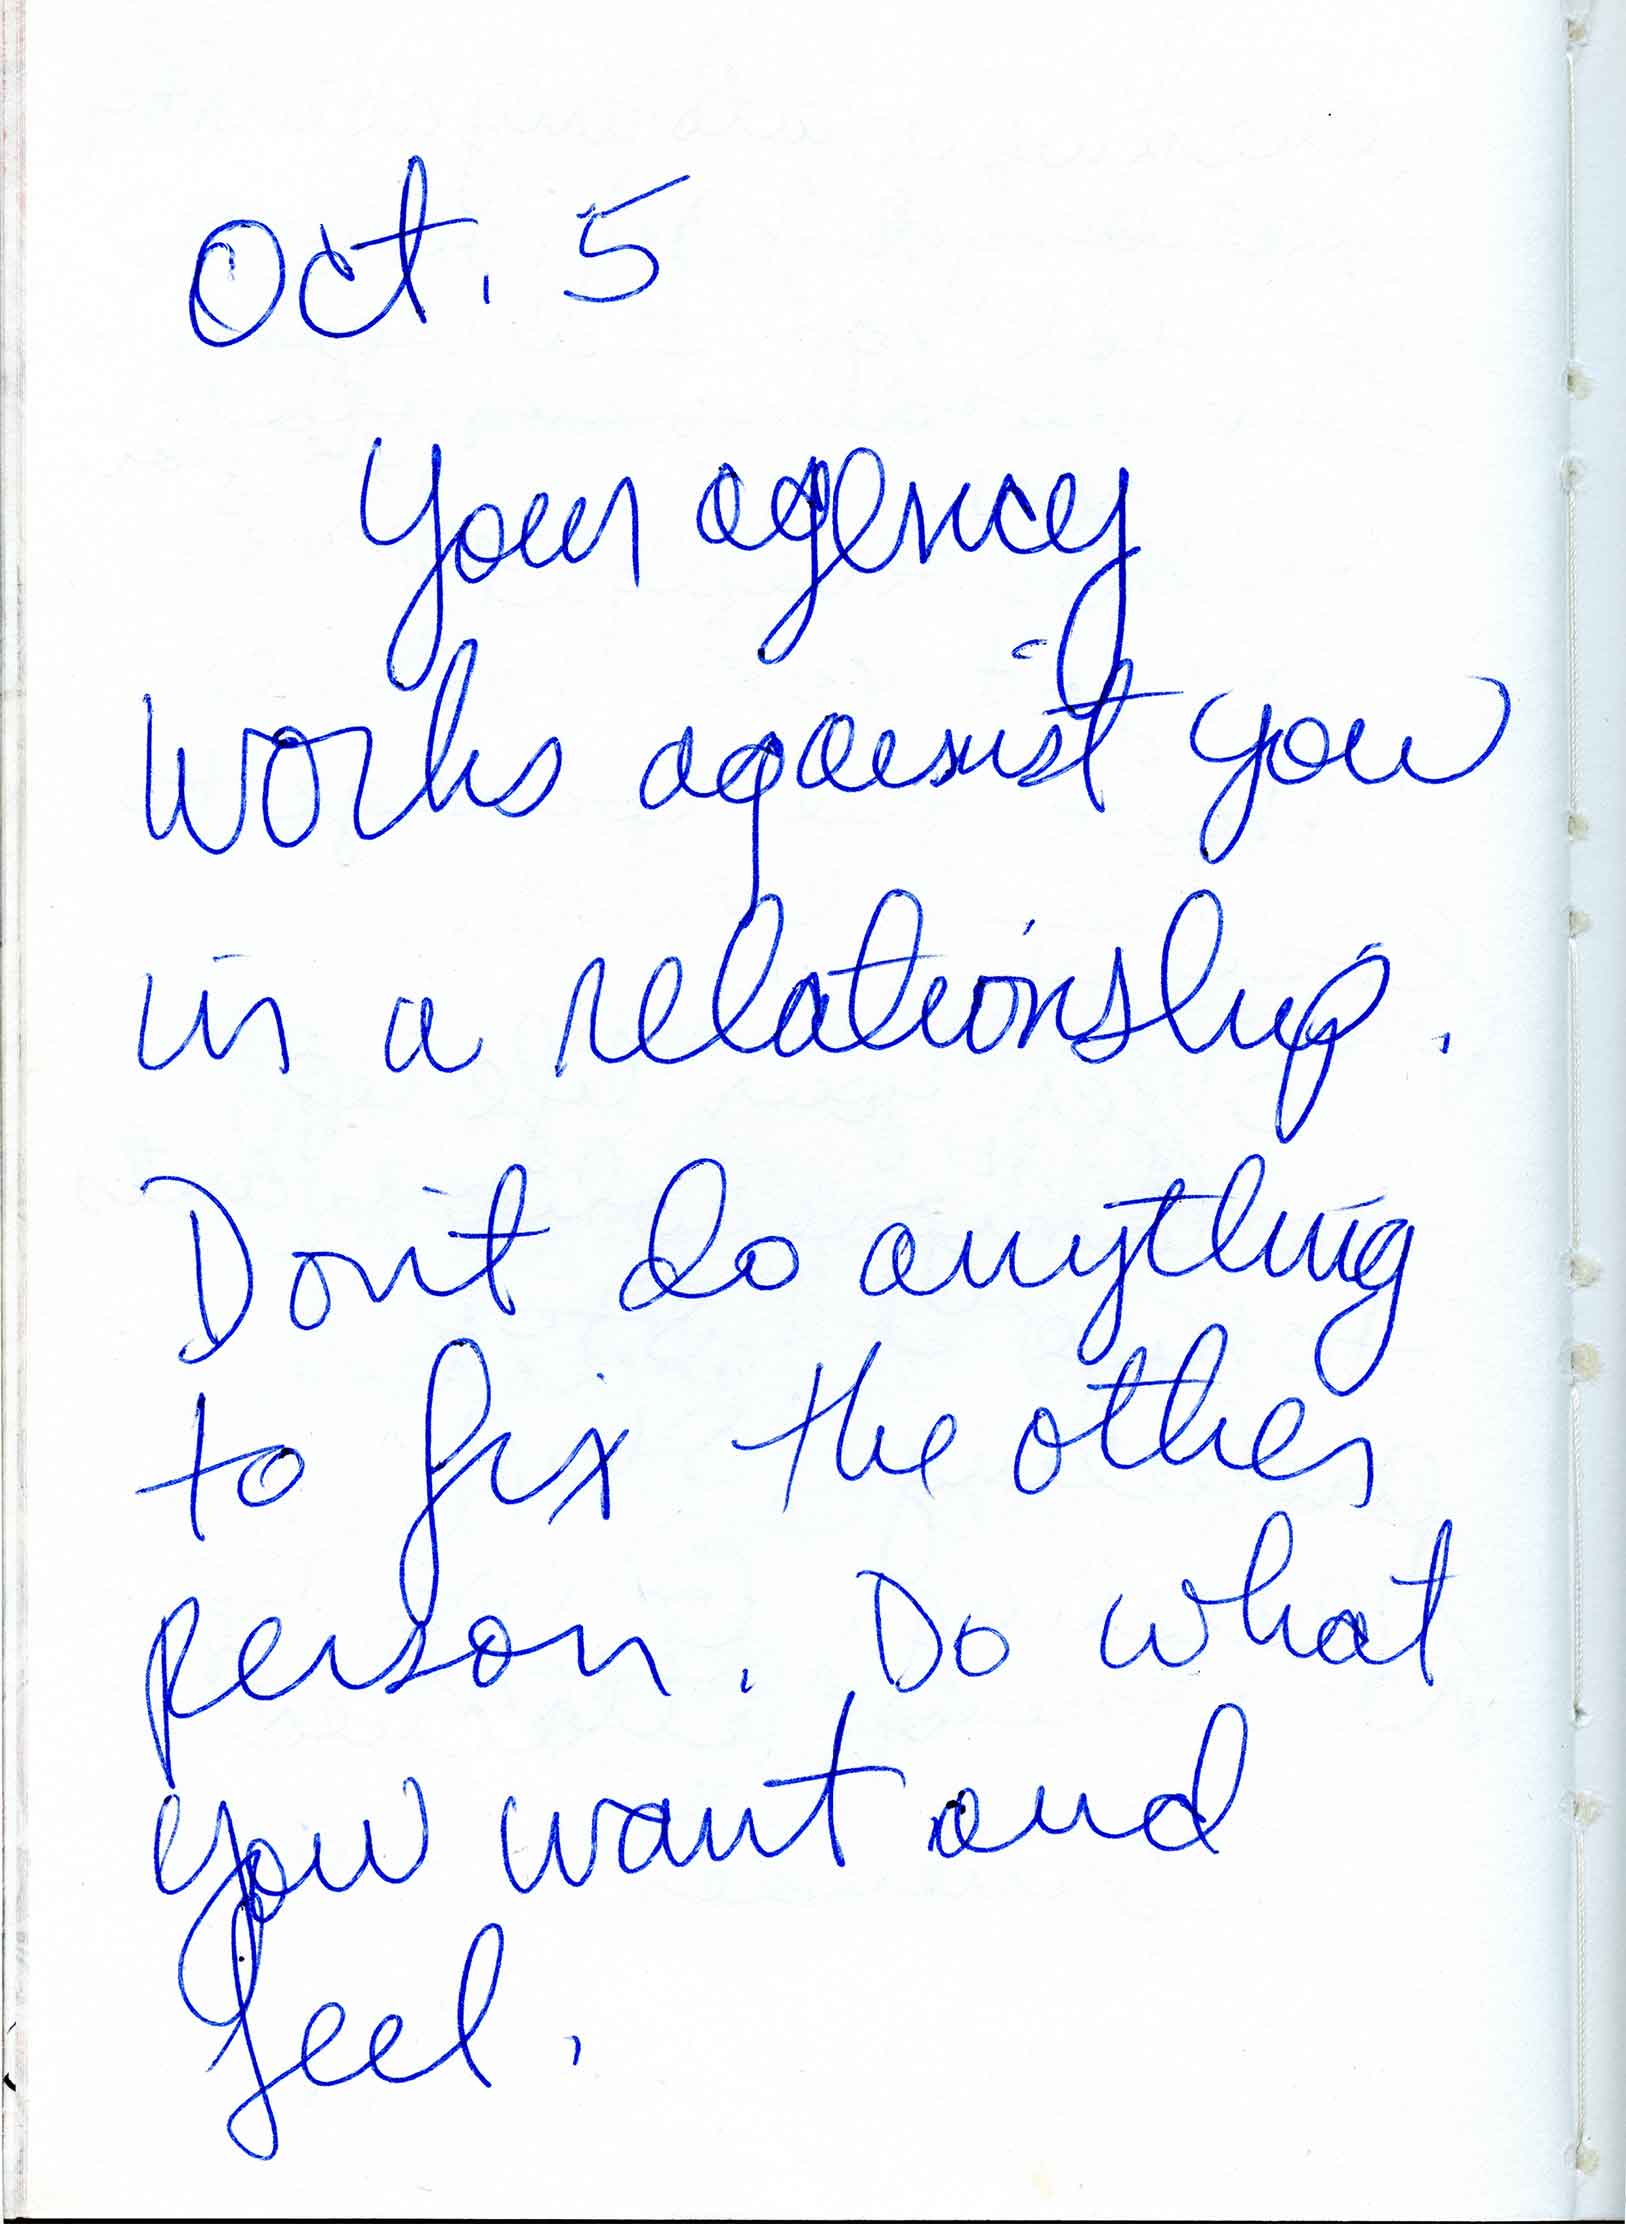 Oct. 5
Your agency
works against you
in a relationship.
Don't do anything
to fix the other
person. Do what
you want and
feel.